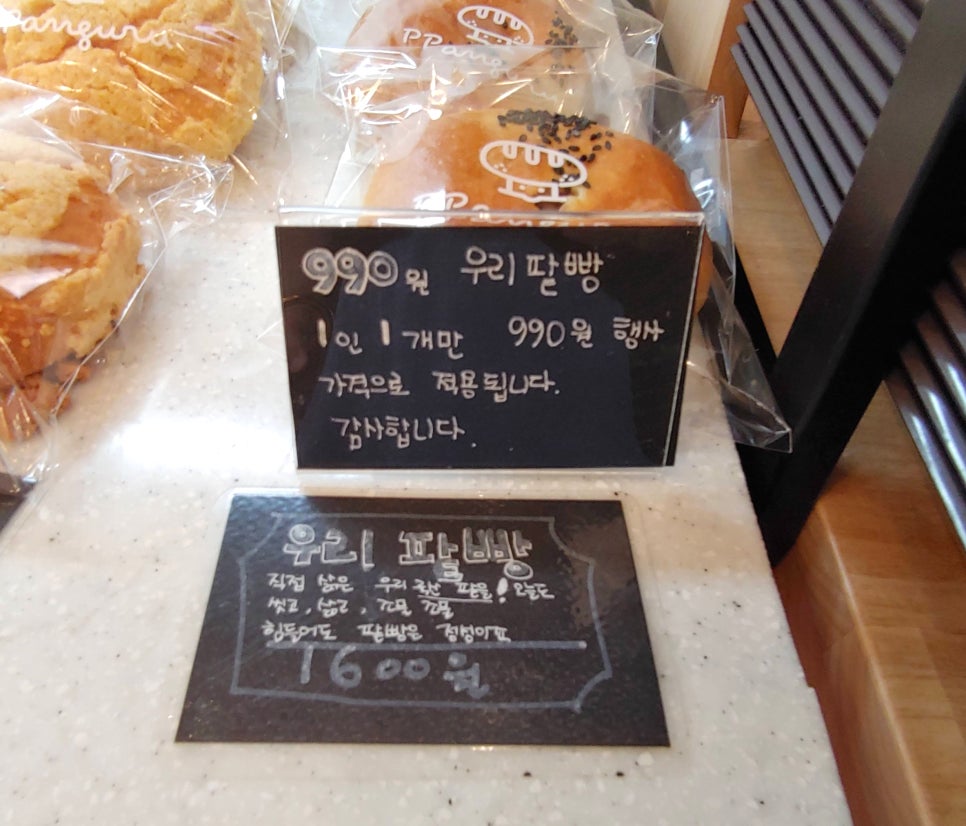 Panguru
PPangu
PPanguru
990원 우리팥빵
1인 1개만 990원 행사
가격으로 적용됩니다.
감사합니다.
우리 팥빵
직접 삶은 우리 국산 팥을! 오늘도
씻고, 삶고, 꼬물꼬물
힘들어도 팥빵은 정성이죠
1600원